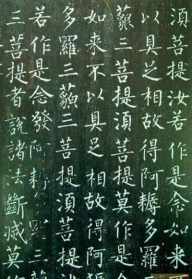 湏菩提汝若作是念如來
以具足相故得阿耨多羅
藐三菩提湏菩提莫作是
如來不以具足相故得阿耨
多羅三藐三菩提湏菩提
若作是念發阿耨三
三菩提者說諸法斷滅莫作